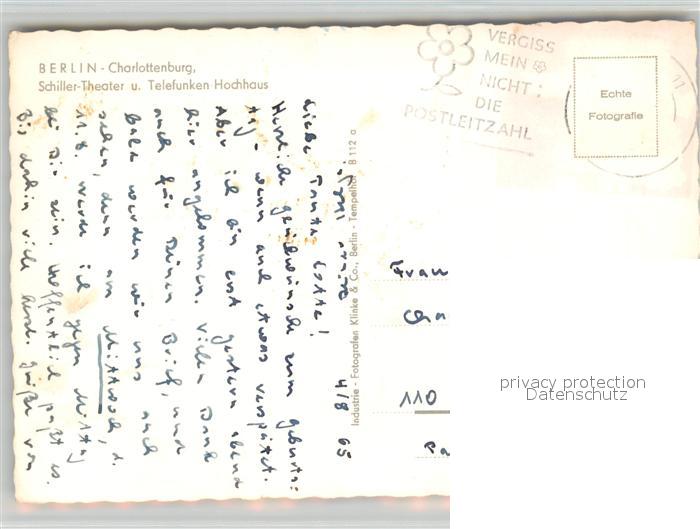 BERLIN - Charlottenburg,
Schiller-Theater u. Telefunken Hochhaus
VERGISS
MEIN
NICHT:
DIE
POSTLEITZAHL
Echte
Fotografie
4/8 65
Liebe Tante Lotte!
Herzliche Glückwünsche zum Geburts-
tag - wenn auch etwas verspätet.
Aber ich bin erst gestern abend
hier angekommen. Vielen Dank
auch für Deinen Brief, und
bald werden wir uns auch
sehen, denn am Mittwoch, d.
11.8. werde ich gegen Mittag
bei Dir sein. Hoffentlich paßt es.
Bis dahin viele herzl. Grüße von
Industrie - Fotografen Klinke & Co., Berlin - Tempelhof B 112 a
Frau
110
privacy protection
Datenschutz